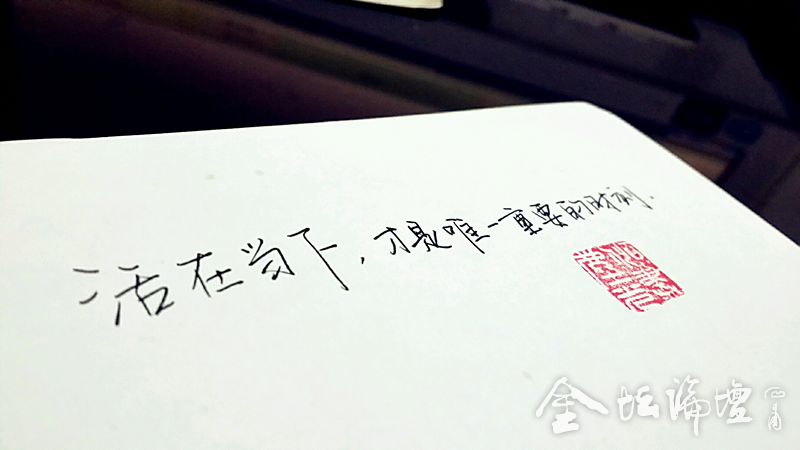 活在当下，才是唯一重要的时刻.
金坛論壇